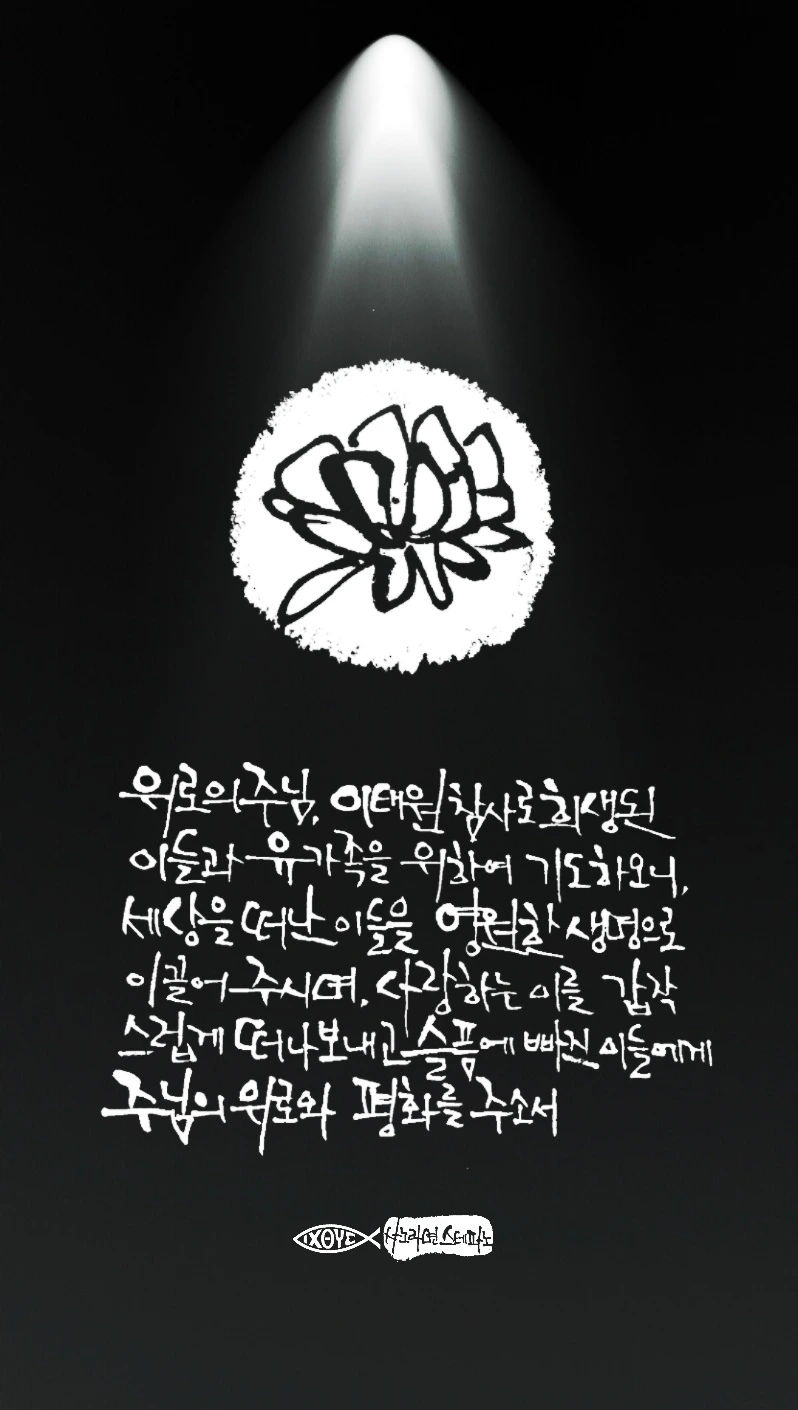 위로의 주님, 이태원 참사로 희생된
이들과 유가족을 위하여 기도하오니,
세상을 떠난 이들을 영원한 생명으로
이끌어 주시며, 사랑하는 이를 갑작
스럽게 떠나보내고 슬픔에 빠진 이들에게
주님의 위로와 평화를 주소서
ΙΧΘΥΣ
스테파노